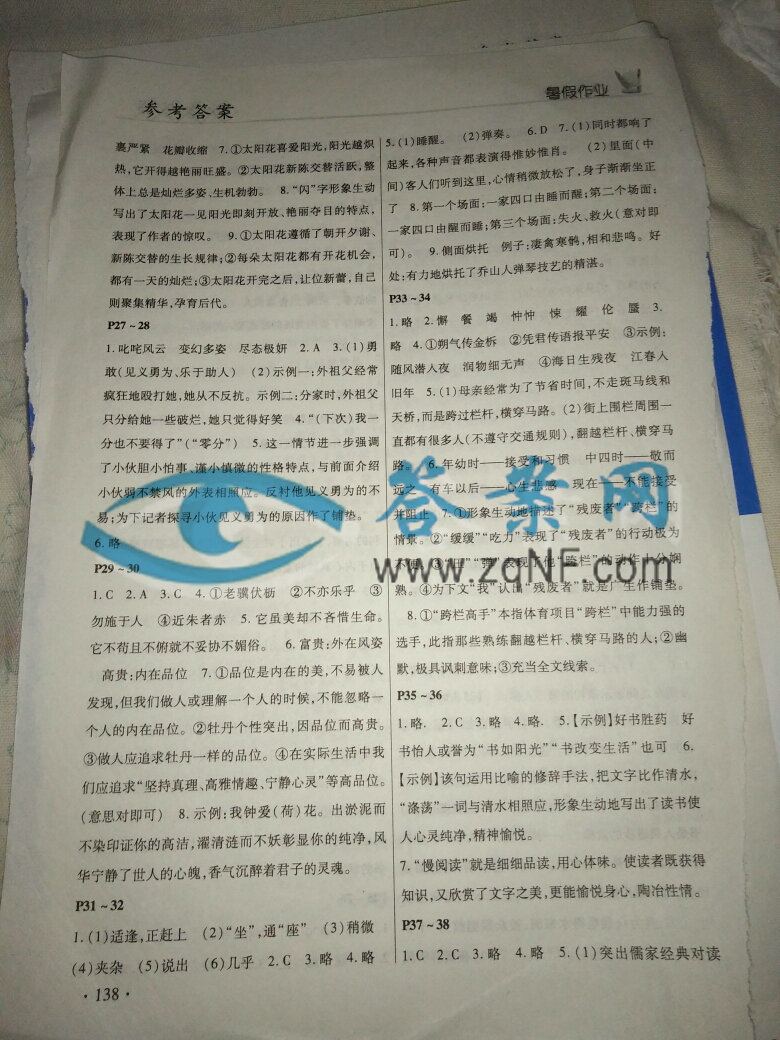 参考答案
暑假作业
裹严紧 花瓣收缩 7.①太阳花喜爱阳光,阳光越炽
热,它开得越艳丽旺盛。②太阳花新陈交替活跃,整
体上总是灿烂多姿、生机勃勃。 8.“闪”字形象生动
写出了太阳花一见阳光即刻开放、艳丽夺目的特点,
表现了作者的惊叹。 9.①太阳花遵循了朝开夕谢、
新陈交替的生长规律;②每朵太阳花都有开花机会,
都有一天的灿烂;③太阳花开完之后,让位新蕾,自己
则聚集精华,孕育后代。
P27~28
1.叱咤风云 变幻多姿 尽态极妍 2.A 3.(1)勇
敢(见义勇为、乐于助人) (2)示例一:外祖父经常
疯狂地殴打她,她从不反抗。示例二:分家时,外祖父
只分给她一些破烂,她只觉得好笑 4.“(下次)我一
分也不要得了”(“零分”) 5.这一情节进一步强调
了小伙胆小怕事、谨小慎微的性格特点,与前面介绍
小伙弱不禁风的外表相照应。反衬他见义勇为的不
易;为下记者探寻小伙见义勇为的原因作了铺垫。
6.略
P29~30
1.C 2.A 3.C 4.①老骥伏枥 ②不亦乐乎 ③
勿施于人 ④近朱者赤 5.它虽美却不吝惜生命。
它不苟且不俯就不妥协不媚俗。 6.富贵;外在风姿
高贵;内在品位 7.①品位是内在的美,不易被人
发现,但我们做人或理解一个人的时候,不能忽略一
个人的内在品位。②牡丹个性突出,因品位而高贵。
③做人应追求牡丹一样的品位。④在实际生活中我
们应追求“坚持真理、高雅情趣、宁静心灵”等高品位。
(意思对即可) 8.示例:我钟爱(荷)花。出淤泥而
不染印证你的高洁,濯清涟而不妖彰显你的纯净,风
华宁静了世人的心魄,香气沉醉着君子的灵魂。
P31~32
1.(1)适逢,正赶上 (2)“坐”,通“座” (3)稍微
(4)夹杂 (5)说出 (6)几乎 2.C 3.略 4.略
·138·
5.(1)睡醒。 (2)弹奏。 6.D 7.(1)同时都响了
起来,各种声音都表演得惟妙惟肖。 (2)里面(中
间)客人们听到这里,心情稍微放松了,身子渐渐坐正
了 8.第一个场面:一家四口由睡而醒;第二个场面:
一家四口由醒而睡;第三个场面:失火、救火(意对即
可)。 9.侧面烘托 例子:凄禽寒鹘,相和悲鸣。好
处:有力地烘托了乔山人弹琴技艺的精湛。
P33~34
1.略 2.懈 餐 竭 忡忡 悚 耀 伦 蜃 3.
略 4.①朔气传金柝 ②凭君传语报平安 ③示例:
随风潜入夜 润物细无声 ④海日生残夜 江春入
旧年 5.(1)母亲经常为了节省时间,不走斑马线和
天桥,而是跨过栏杆,横穿马路。(2)街上围栏周围一
直都有很多人(不遵守交通规则),翻越栏杆、横穿马
路。 6.年幼时——接受和习惯 中四时——敬而
远之 有车以后——心生悲感 现在——不能接受
并阻止 7.①形象生动地描述了“残废者”“跨栏”的
情景。②“缓缓”“吃力”表现了“残废者”的行动极为
不便。③表现了他“跨栏”的动作十分娴
熟。④为下文“我”认出“残废者”就是广生作铺垫。
8.①“跨栏高手”本指体育项目“跨栏”中能力强的
选手,此指那些熟练翻越栏杆、横穿马路的人;②幽
默,极具讽刺意味;③充当全文线索。
P35~36
1.略. 2.C 3.略 4.略. 5.【示例】好书胜药 好
书怡人或誉为“书如阳光”“书改变生活”也可 6.
【示例】该句运用比喻的修辞手法,把文字比作清水,
“涤荡”一词与清水相照应,形象生动地写出了读书使
人心灵纯净,精神愉悦。
7.“慢阅读”就是细细品读,用心体味。使读者既获得
知识,又欣赏了文字之美,更能愉悦身心,陶冶性情。
P37~38
1.C 2.C 3.略 4.略 5.(1)突出儒家经典对读
答案网
www.zqNF.com